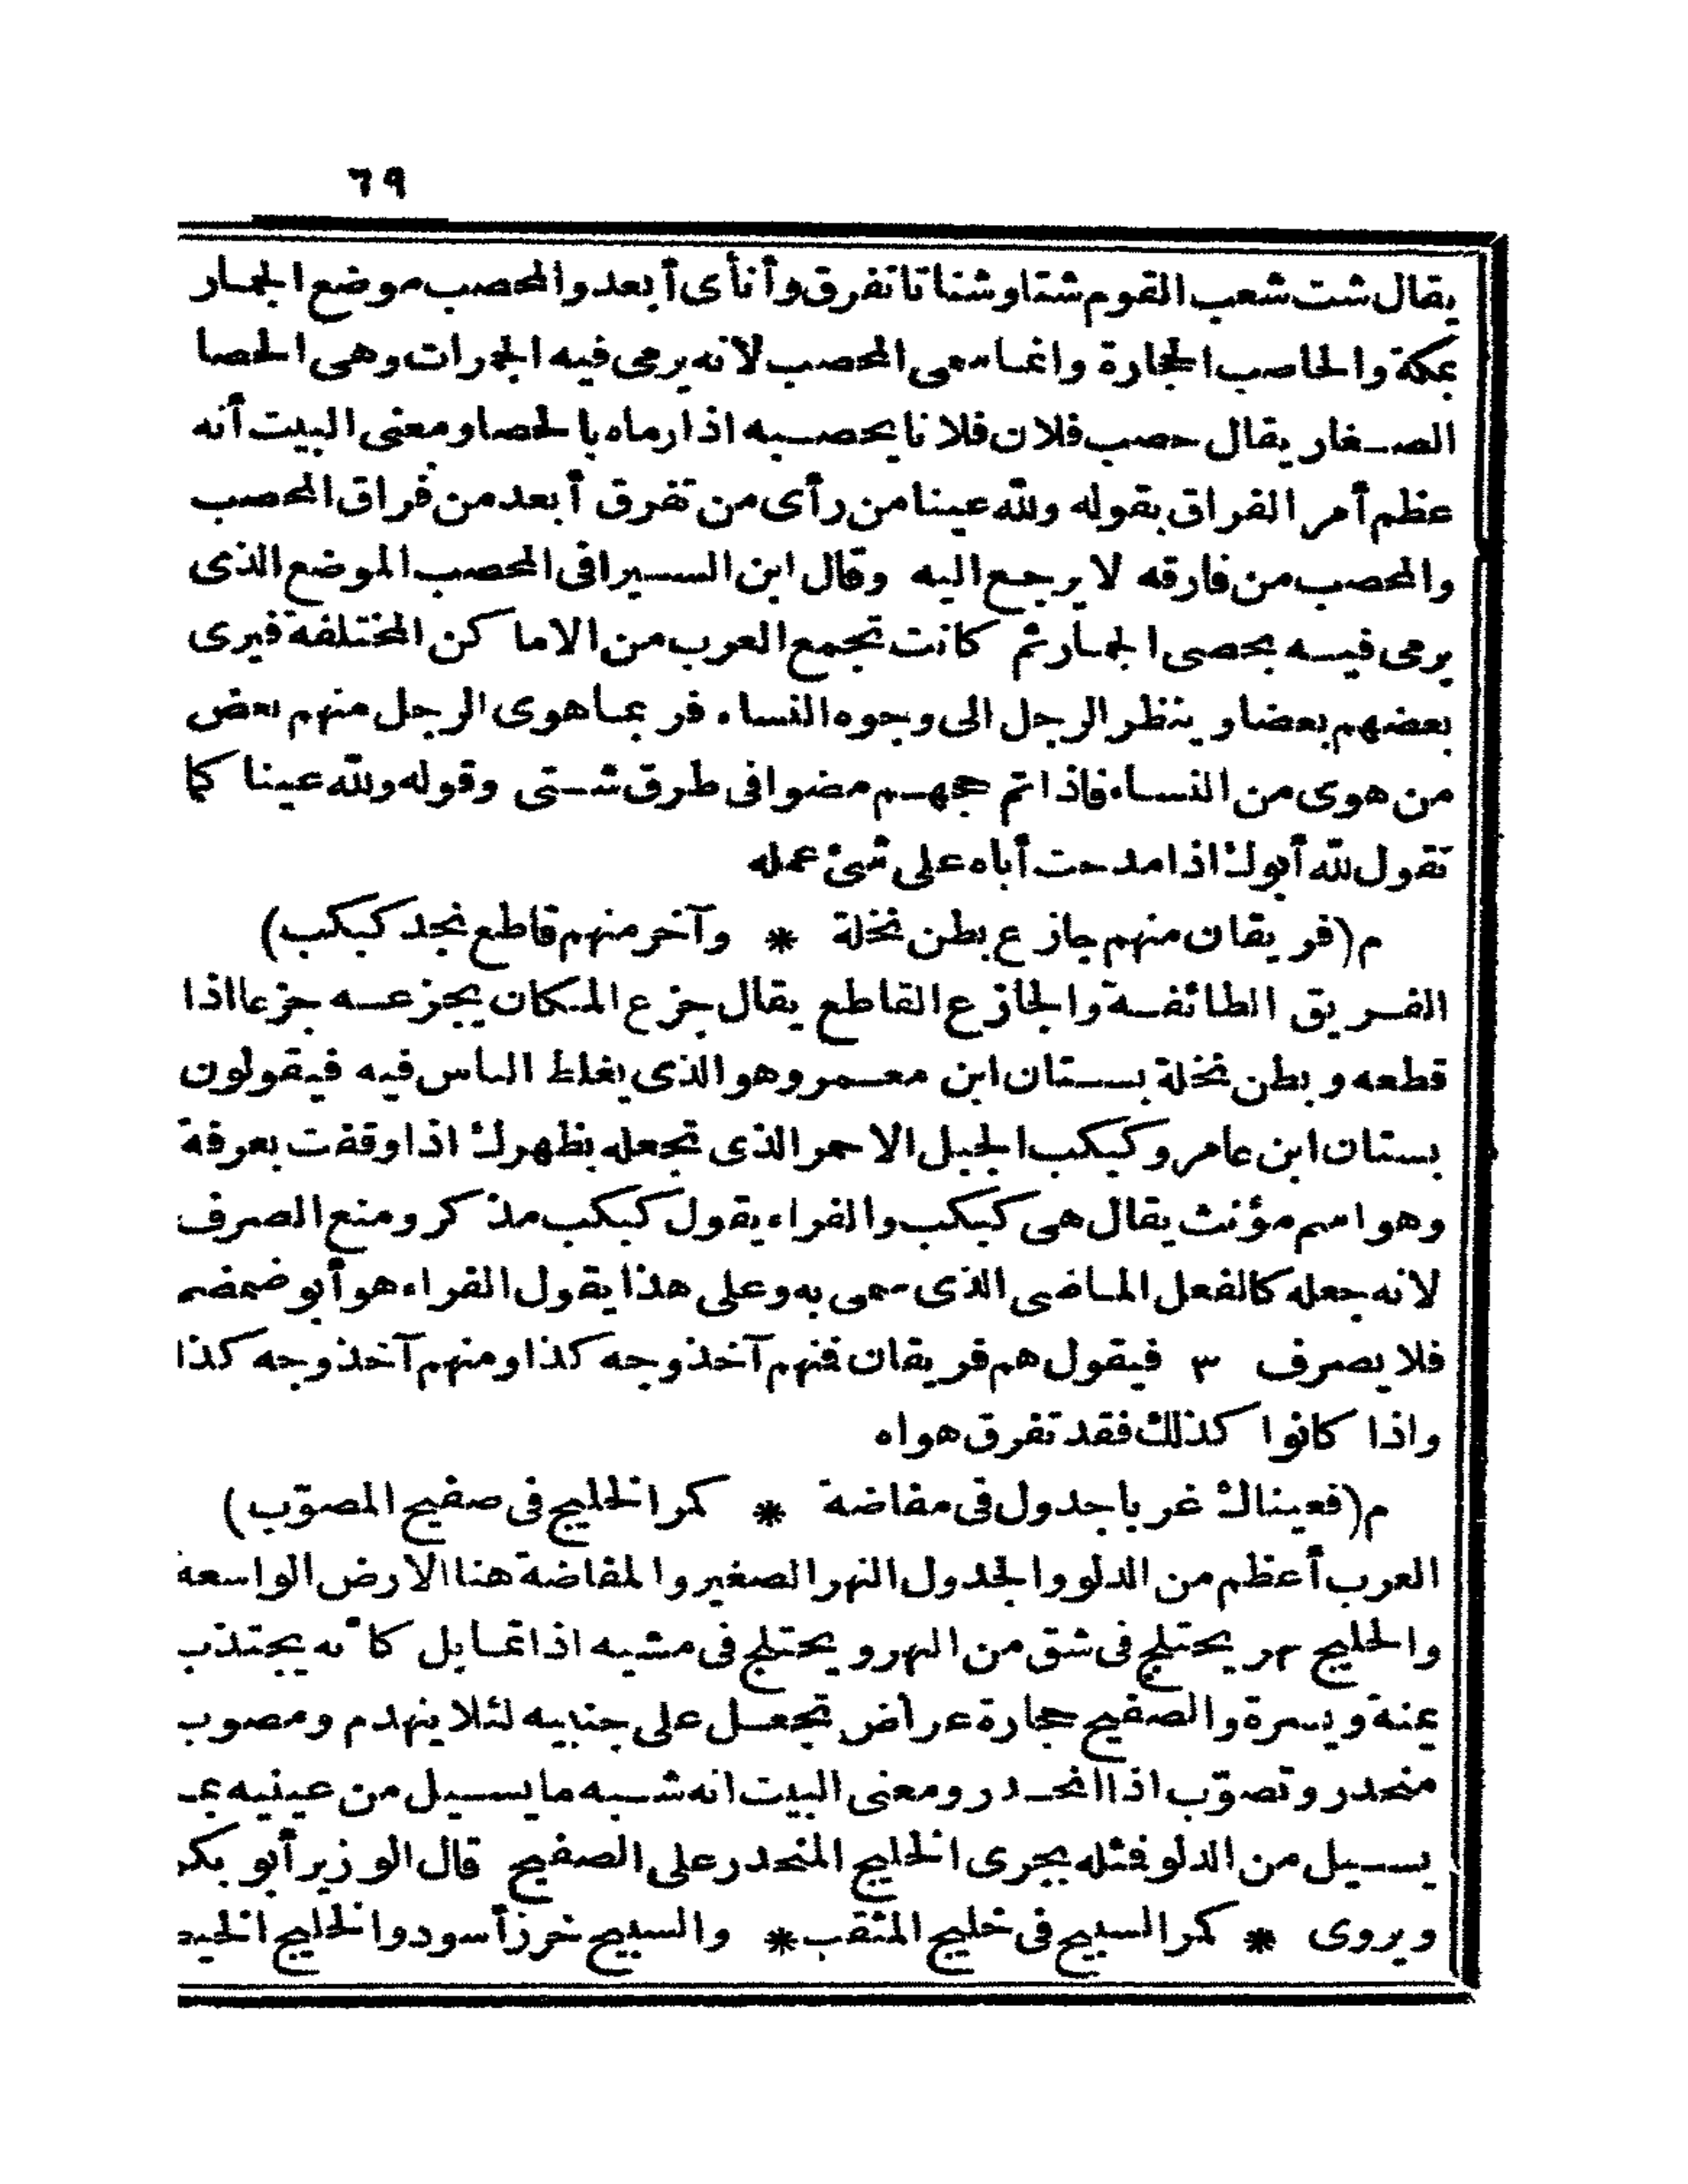 ٦٩
يقال شت شعب القوم شتا وشتاتا تفرق وأنأى أبعد والمحصب موضع الجمار
بمكة والحاصب الحجارة وانما سمى المحصب لانه يرمى فيه الجمرات وهى الحصا
الصغار يقال حصب فلان فلانا يحصبه اذا رماه بالحصا ومعنى البيت أنه
عظم أمر الفراق بقوله ولله عينا من رأى من تفرق أبعد من فراق المحصب
والمحصب من فارقه لا يرجع اليه وقال ابن السيرافى المحصب الموضع الذى
يرمى فيه بحصى الجمار ثم كانت تجمع العرب من الاماكن المختلفة فيرى
بعضهم بعضا وينظر الرجل الى وجوه النساء فربما هوى الرجل منهم بعض
من هوى من النساء فاذا تم حجهم مضوا فى طرق شتى وقوله ولله عينا كما
تقول لله أبوك اذا مدحت أباه على شئ عمله
م (فريقان منهم جازع بطن نخلة * وآخر منهم قاطع نجد كبكب)
الفريق الطائفة والجازع القاطع يقال جزع المكان يجزعه جزعا اذا
قطعه وبطن نخلة بستان ابن معمر وهو الذى يغلط الناس فيه فيقولون
بستان ابن عامر وكبكب الجبل الاحمر الذى تجعله بظهرك اذا وقفت بعرفة
وهو اسم مؤنث يقال هى كبكب والفراء يقول كبكب مذكر ومنع الصرف
لانه جعله كالفعل الماضى الذى سمى به وعلى هذا يقول الفراء هو أبو ضمضم
فلا يصرف ٣ فيقول هم فريقان فمنهم آخذ وجه كذا ومنهم آخذ وجه كذا
واذا كانوا كذلك فقد تفرق هواه
م (فعيناك غربا جدول فى مفاضة * كمر الخليج فى صفيح المصوّب)
الغرب أعظم من الدلو والجدول النهر الصغير والمفاضة هنا الارض الواسعة
والخليج نهر يختلج فى شق من النهر ويختلج فى مشيه اذا تمايل كأنه يجتذب
يمنة ويسرة والصفيح حجارة عراض تجعل على جنبيه لئلا ينهدم ومصوب
منحدر وتصوّب اذا انحدر ومعنى البيت انه شبه ما يسيل من عينيه بما
يسيل من الدلو فمثله يجرى الخليج المنحدر على الصفيح قال الوزير أبو بكر
ويروى * كمر السبيح فى خليج المثقب * والسبيح خرز أسود والخليج